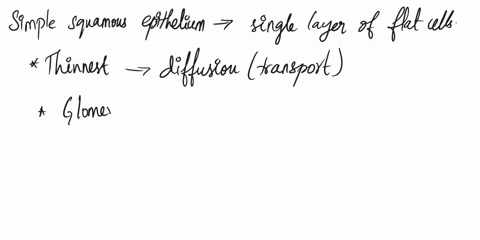 Simple squamous epithelium → single layer of flat cells.
* Thinnest → diffusion (transport)
* Glomer